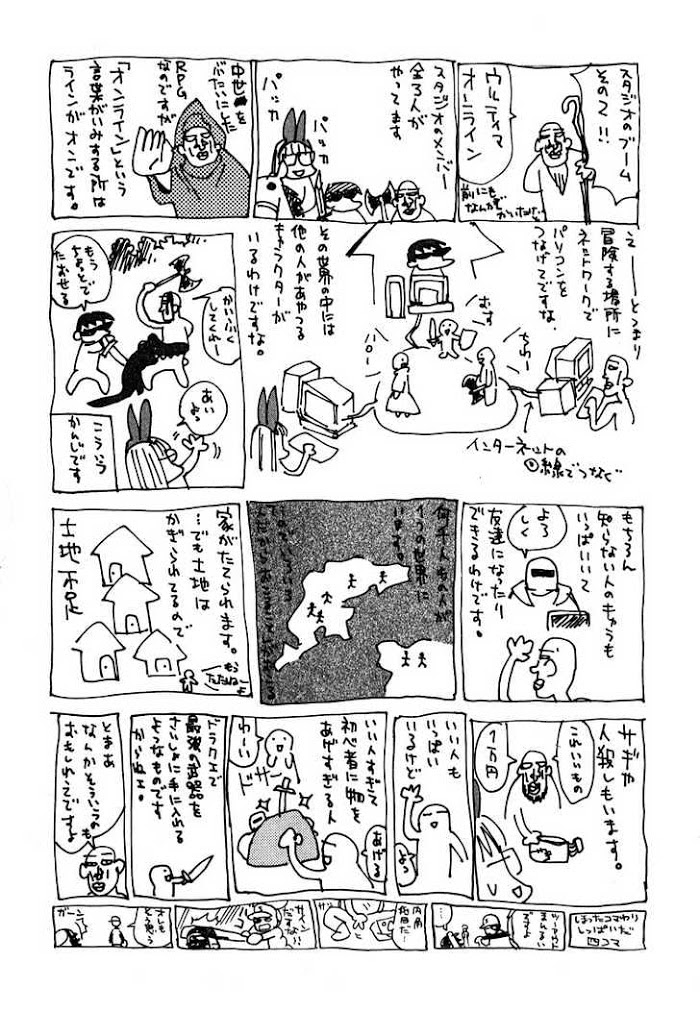 スタジオのブーム
その2!!
ウルティマ
オンライン
前にも
スタジオのメンバー
全3人が
やってます
パッカ
パッカ
中世を
ぶたいにした
RPG
なのですが
「オンライン」という
言葉がいみする所は
ラインがオンです。
えーーとつまり
冒険する場所に
ネットワークで
パソコンを
つなげてですな、
その世界の中には
他の人があやつる
キャラクターが
いるわけですな。
むす
ちわー
パロー
インターネットの
線でつなぐ
もう
ちょっとで
たおせる
かいふく
してくれー
あい
よ
こういう
かんじです
もちろん
知らない人のキャラも
いっぱいいて
友達になったり
できるわけです。
よろ
しく
何千人もの人が
1つの世界に
います。
家がたてられます。
…でも土地は
かぎられてるので
土地不足
もう
たたねーよ
サギや
人殺しもいます。
これいいもの
1万円
いい人も
いっぱい
いるけど
よっ
いい人すぎて
初心者に物を
あげすぎる人
あげる
わーい
ドサッ
ドラクエで
最強の武器を
さいしょに手に入れる
ようなものです
からねェ。
とまあ
なんかそういうのも
おもしろいですよ
しまったコマわり
しっぱいだ
四コマ
…
内角
ガーン
オレも
そう思う